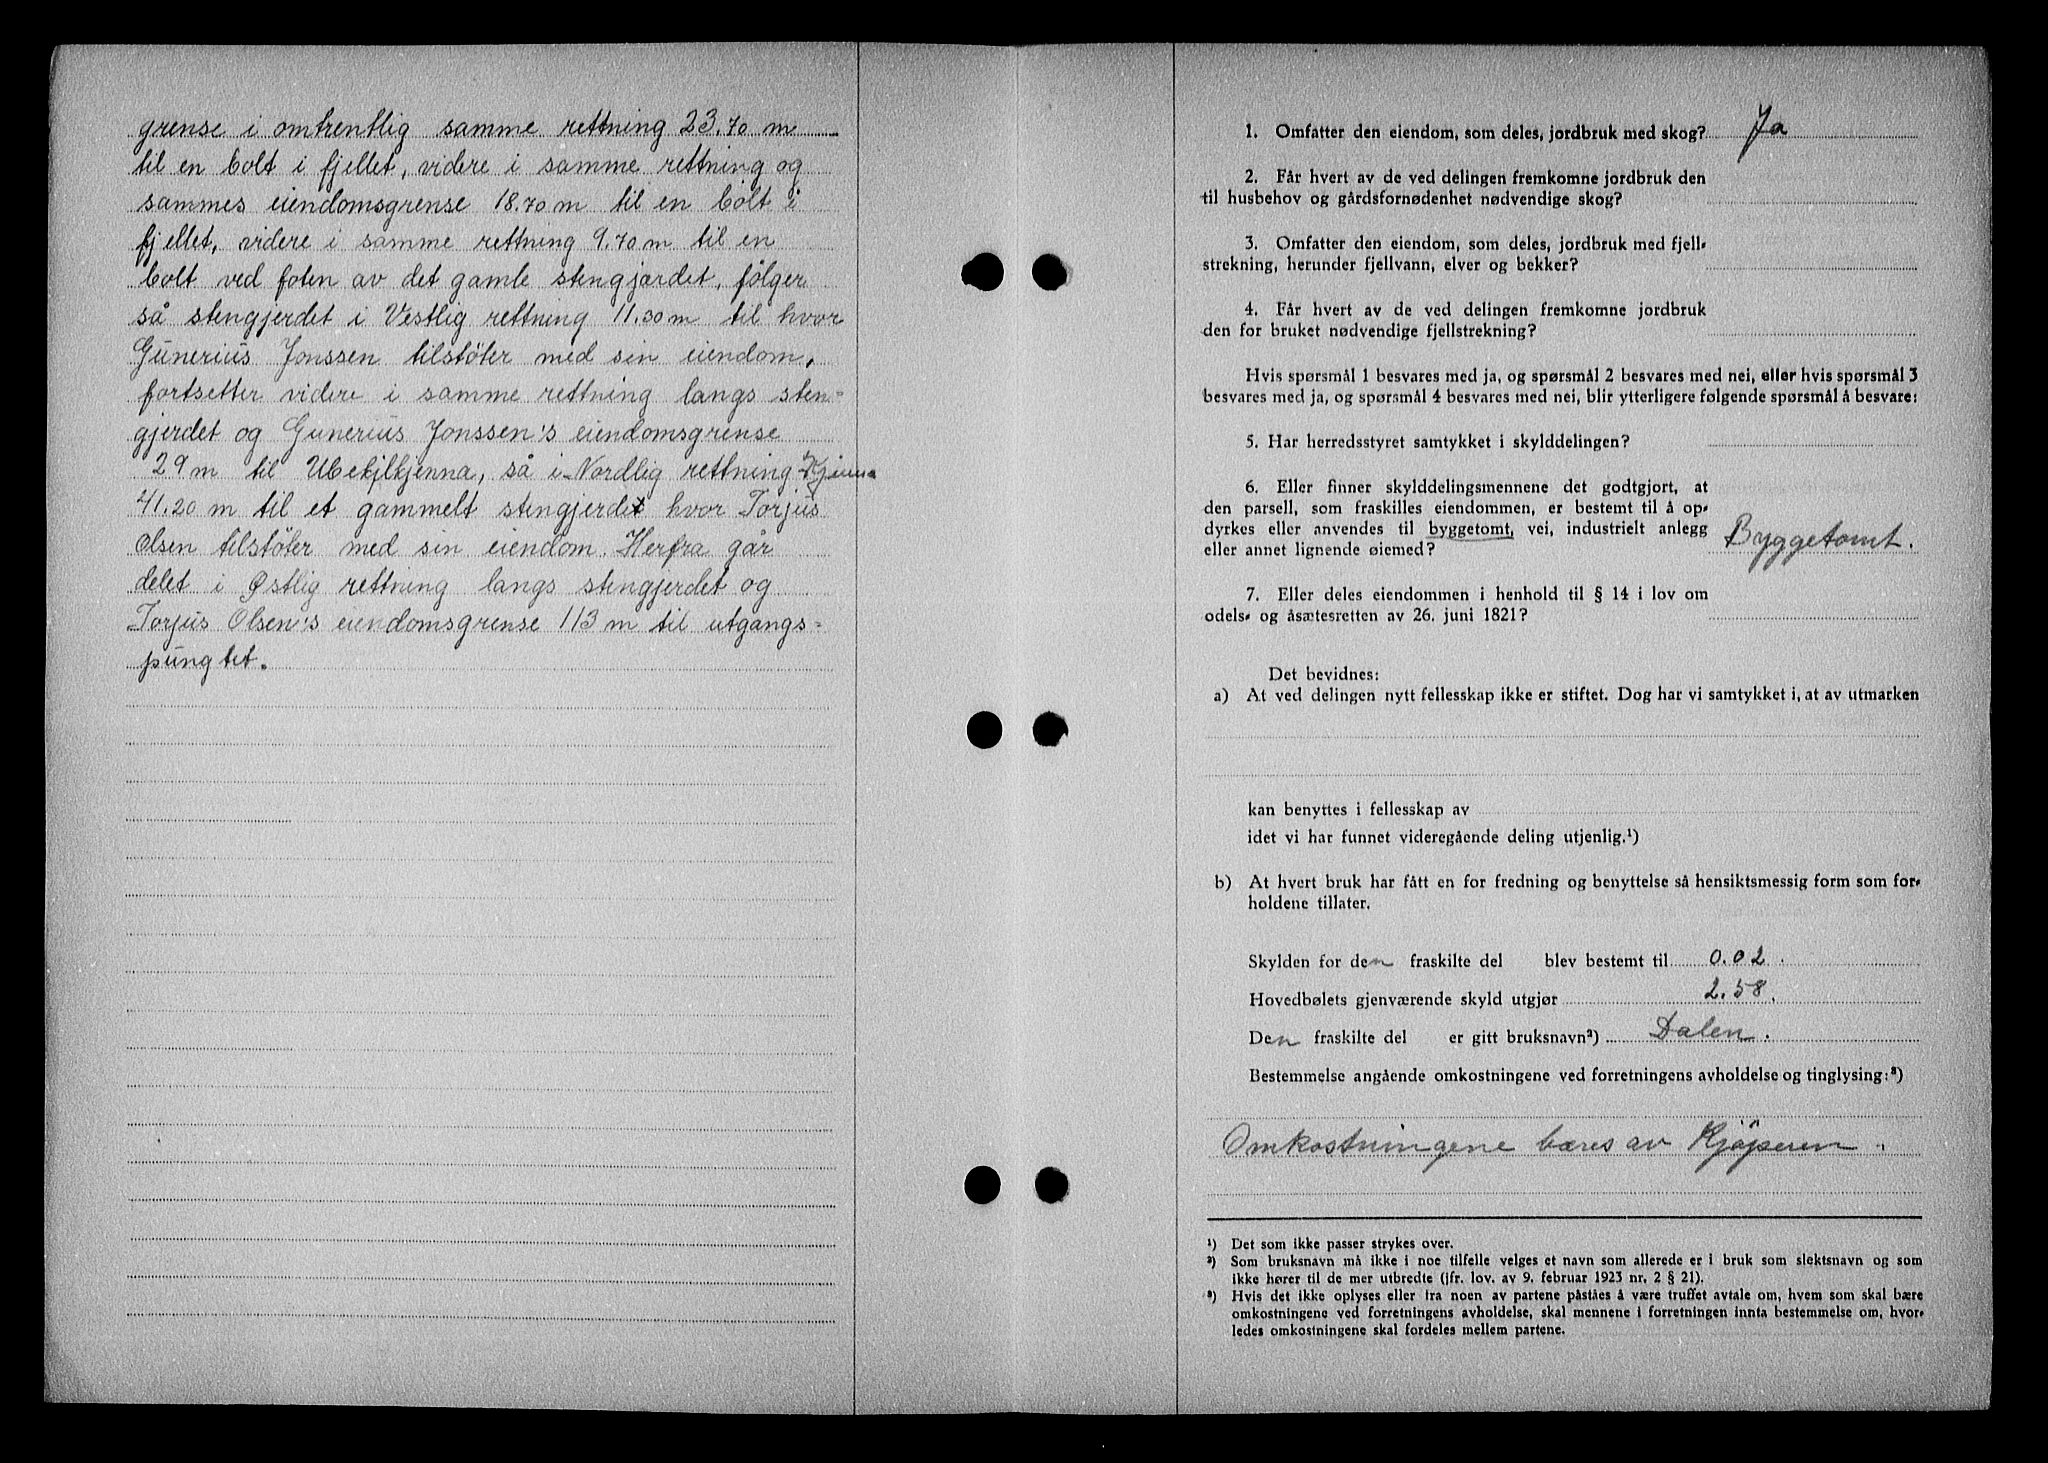 grense i omtrentlig samme rettning 23.70 m
til en bolt i fjellet, videre i samme rettning og
sammes eiendomsgrense 18.70 m til en bolt i
fjellet, videre i samme rettning 9.70 m til en
bolt ved foten av det gamle stengjærdet, følger
så stengjerdet i Vestlig rettning 11.30 m til hvor
Gunerius Jonssen tilstöter med sin eiendom,
fortsetter videre i samme rettning langs sten-
gjerdet og Gunerius Jonssen's eiendomsgrense
29 m til, så i Nordlig rettning
41.20 m til et gammelt stengjerde hvor Torjus
Olsen tilstöter med sin eiendom. Herfra går
delet i Østlig rettning langs stengjerdet og
Torjus Olsen's eiendomsgrense 113 m til utgangs-
pungtet.
1. Omfatter den eiendom, som deles, jordbruk med skog? Ja
2. Får hvert av de ved delingen fremkomne jordbruk den
til husbehov og gårdsfornødenhet nødvendige skog?
3. Omfatter den eiendom, som deles, jordbruk med fjell-
strekning, herunder fjellvann, elver og bekker?
4. Får hvert av de ved delingen fremkomne jordbruk
den for bruket nødvendige fjellstrekning?
Hvis spørsmål 1 besvares med ja, og spørsmål 2 besvares med nei, eller hvis spørsmål 3
besvares med ja, og spørsmål 4 besvares med nei, blir ytterligere følgende spørsmål å besvare:
5. Har herredsstyret samtykket i skylddelingen?
6. Eller finner skylddelingsmennene det godtgjort, at
den parsell, som fraskilles eiendommen, er bestemt til å op-
dyrkes eller anvendes til byggetomt, vei, industrielt anlegg
eller annet lignende øiemed? Byggetomt.
7. Eller deles eiendommen i henhold til § 14 i lov om
odels- og åsætesretten av 26. juni 1821?
Det bevidnes:
a) At ved delingen nytt fellesskap ikke er stiftet. Dog har vi samtykket i, at av utmarken
kan benyttes i fellesskap av
idet vi har funnet videregående deling utjenlig.¹)
b) At hvert bruk har fått en for fredning og benyttelse så hensiktsmessig form som for-
holdene tillater.
Skylden for den fraskilte del blev bestemt til 0.02.
Hovedbølets gjenværende skyld utgjør 2.58.
Den fraskilte del er gitt bruksnavn²) Dalen.
Bestemmelse angående omkostningene ved forretningens avholdelse og tinglysing:³)
Omkostningene bæres av Kjøperen.
¹) Det som ikke passer strykes over.
²) Som bruksnavn må ikke i noe tilfelle velges et navn som allerede er i bruk som slektsnavn og som
ikke hører til de mer utbredte (jfr. lov. av 9. februar 1923 nr. 2 § 21).
³) Hvis det ikke oplyses eller fra noen av partene påståes å være truffet avtale om, hvem som skal bære
omkostningene ved forretningens avholdelse, skal mennene i forretningen innta bestemmelse om, hvor-
ledes omkostningene skal fordeles mellem partene.